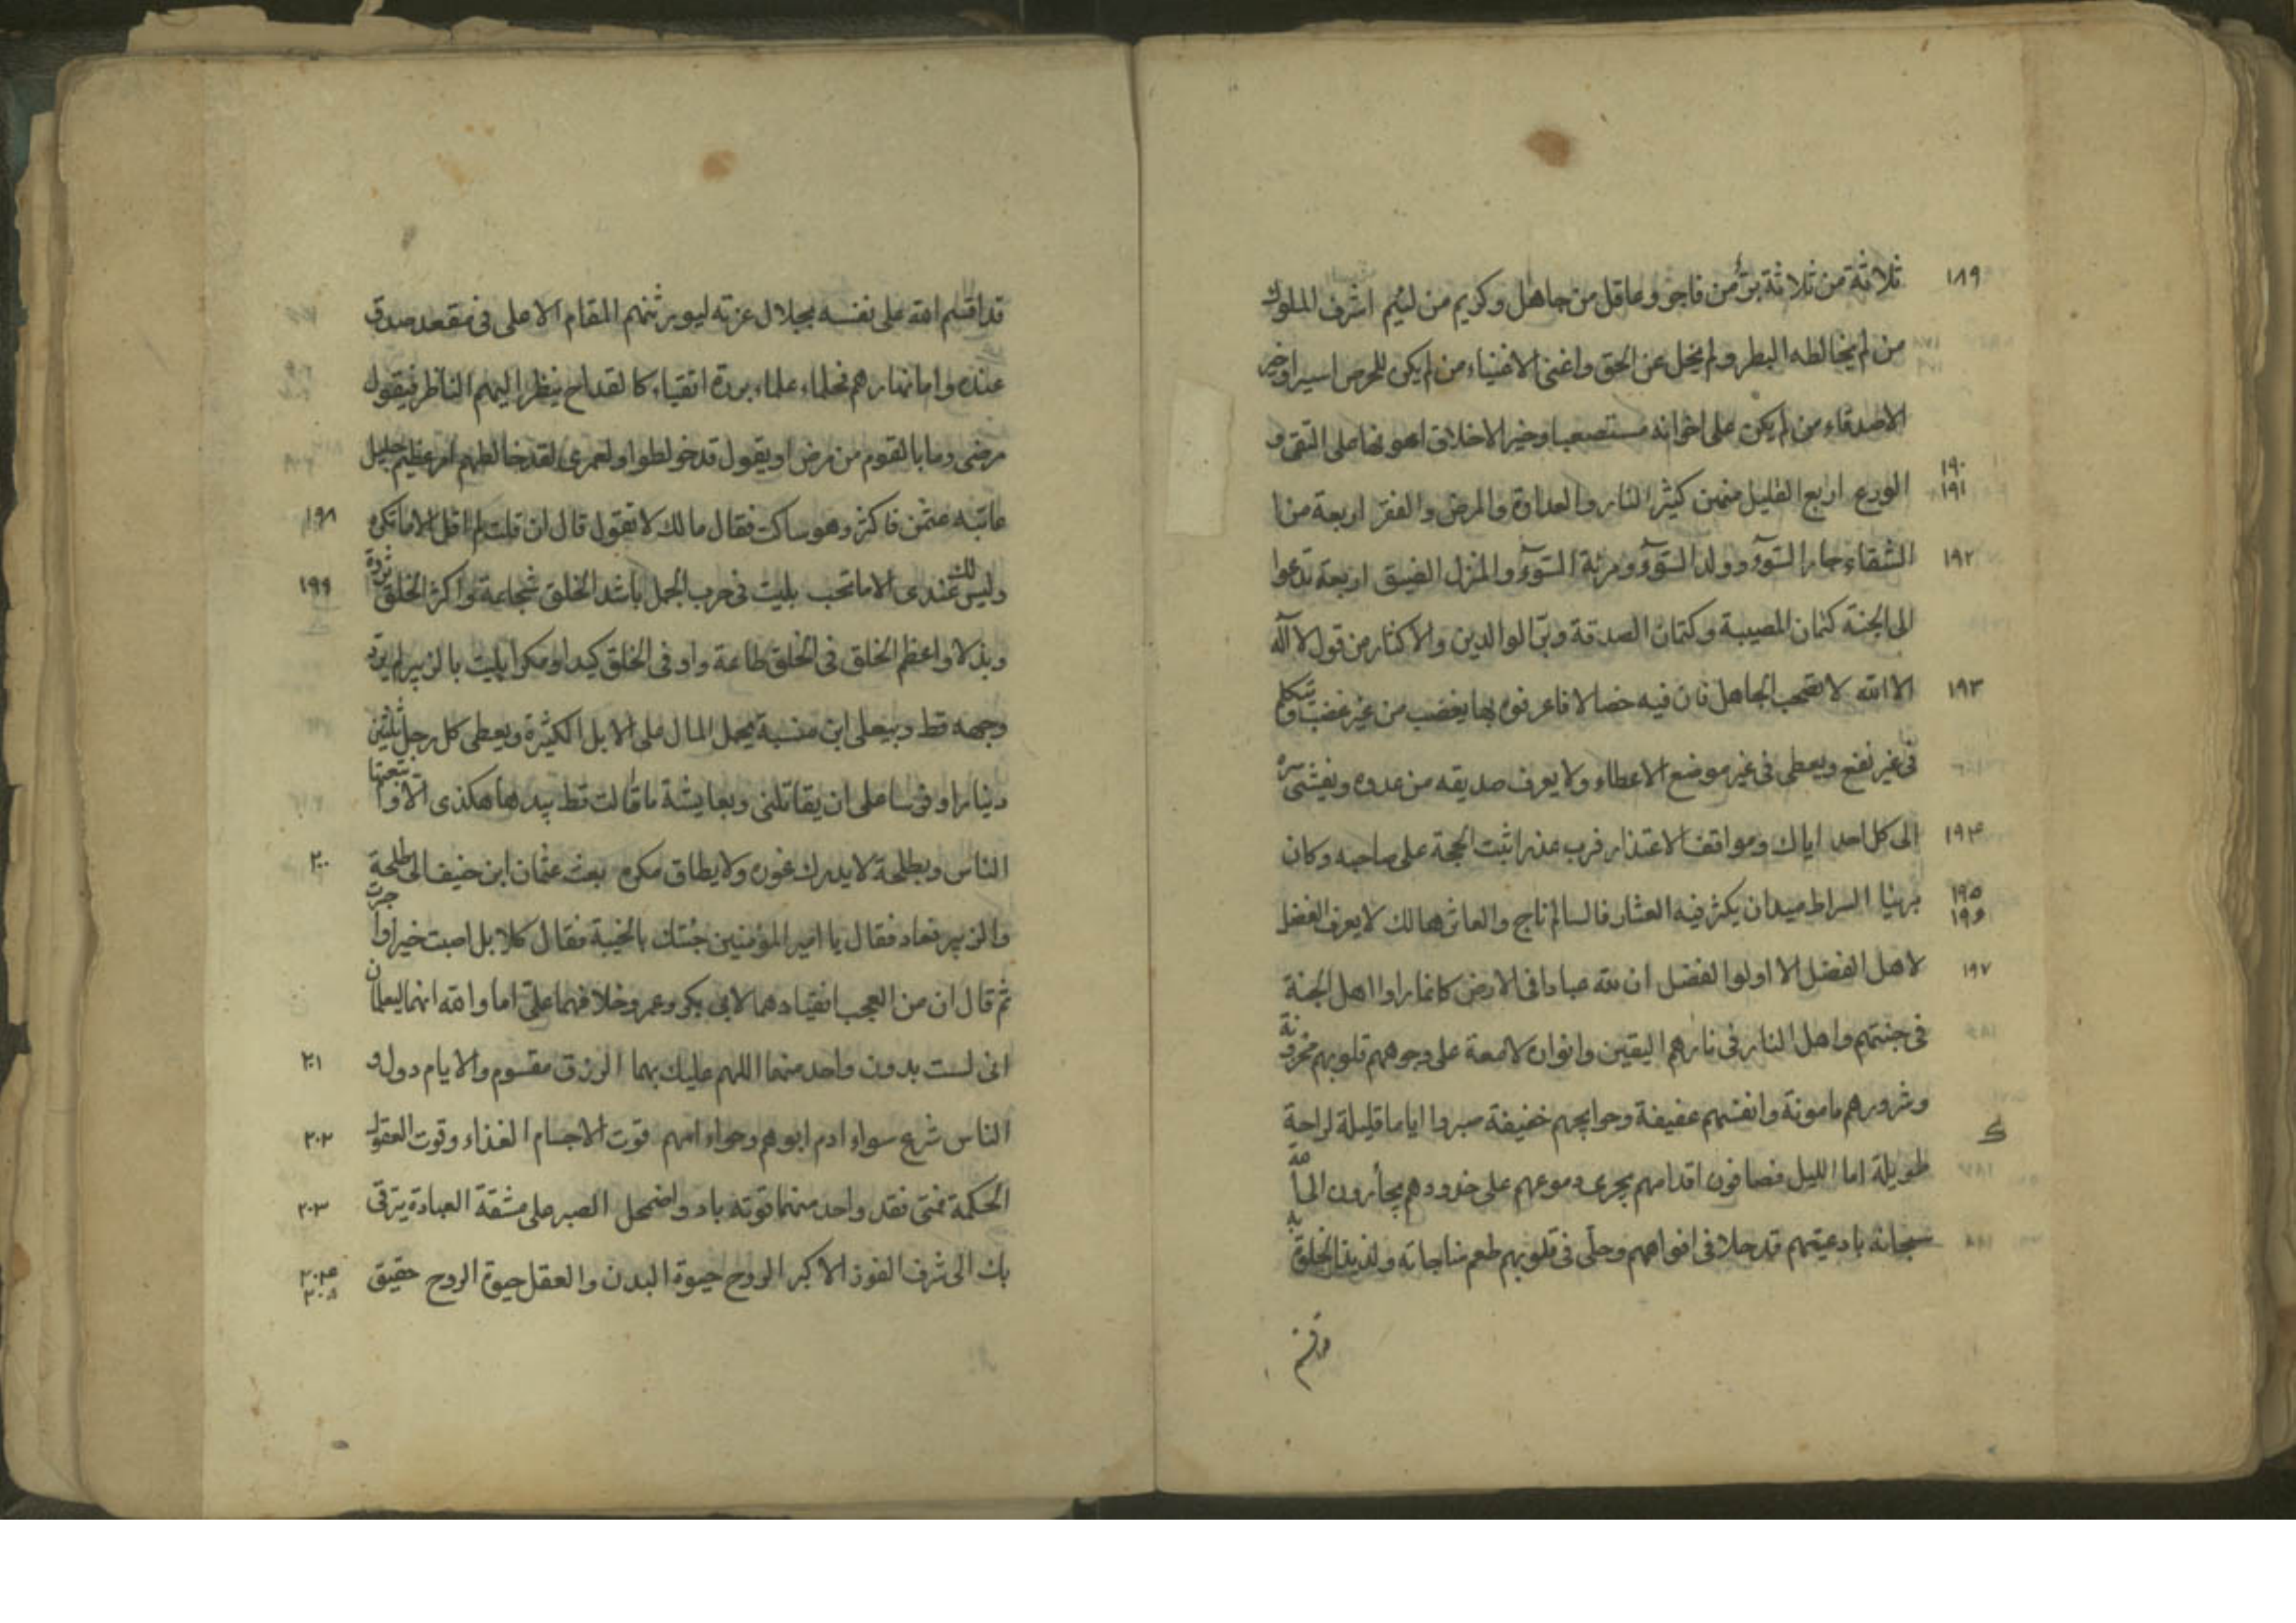 ١٨٩ ثلاثة من ثلاثة برّ من فاجر وعاقل من جاهل وكريم من لئيم اشرف الملوك
من لم يخالطه البطر ولم يخل عن الحق واغنى الاغنياء من لم يكن للحرص اسيرا وخير
الاصدقاء من لم يكن على اخوانه مستصعبا وخير الاخلاق اعونها على التقى و
١٩٠ ١٩١ الورع اربع القليل منهن كثير النار والعداوة والمرض والفقر اربعة من
١٩٢ الشقاء جار السّوء وولد السّوء ومرئة السّوء والمنزل الضيق اربعة تدعوا
الى الجنة كتمان المصيبة وكتمان الصدقة وبرّ الوالدين والاكثار من قول لا اله
١٩٣ الا الله لا تصحب الجاهل فان فيه خصالا فاعرفوه بها يغضب من غير غضب ويتكلم
فى غير نفع ويعطى فى غير موضع الاعطاء ولا يعرف صديقه من عدوه ويفشى سره
١٩۴ الى كل احد اياك ومواقف الاعتذار فرب عذر اثبت الحجة على صاحبه وكان
١٩۵ ١٩۶ بريئا السراط ميدان يكثر فيه العثار فالسالم ناج والعاثر هالك لا يعرف الفضل
١٩٧ لاهل الفضل الا اولوا الفضل ان لله عبادا فى الارض كانما راوا اهل الجنة
فى جنتهم واهل النار فى نارهم اليقين وانواره لامعة على وجوههم قلوبهم محزونة
وشرورهم مامونة وانفسهم عفيفة وحوايجهم خفيفة صبروا اياما قليلة لراحة
طويلة اما الليل فصافون اقدامهم يجرى دموعهم على خدودهم يجأرون الى الله
سبحانه بادعيتهم قد حلا فى افواههم وحلّى فى قلوبهم طعم مناجاته ولذيذ الخلوة به
قد اقسم الله على نفسه بجلال عزته ليورثنهم المقام الاعلى فى مقعد صدق
عنده واما نهارهم فحلماء علماء بررة اتقياء كالقداح ينظر اليهم الناظر فيقول
مرضى وما بالقوم من مرض او يقول قد خولطوا ولعمرى لقد خالطهم امر عظيم جليل
عاتبه عثمن فاكثر وهو ساكت فقال مالك لا تقول قال ان قلت لم اقل الا ما تكره ١٩٨
وليس لك عندى الا ما تحب بليت فى حرب الجمل باشد الخلق شجاعة واكثر الخلق ثروة ١٩٩
وبذلا واعظم الخلق فى الخلق طاعة واوفى الخلق كيدا ومكرا بليت بالزبير لم يرد
وجهه قط وبيعلى ابن منبة يحمل المال على الابل الكثيرة ويعطى كل رجل ثلثين
دينارا وفرسا على ان يقاتلنى وبعايشة ما قالت قط بيدها هكذى الا واتبعتها
الناس وبطلحة لا يدرك غوره ولا يطاق مكره بعث عثمان ابن حنيف الى طلحة ٢٠٠
والزبير فعاد فقال يا امير المؤمنين جئتك بالخيبة فقال كلا بل اصبت خيرا واجرت
ثم قال ان من العجب انقيادهما لابى بكر وعمر وخلافهما علىّ اما والله انهما ليعلمان
انى لست بدون واحد منهما اللهم عليك بهما الرزق مقسوم والايام دول و ٢٠١
الناس شرع سواء ادم ابوهم وحواء امهم قوت الاجسام الغذاء وقوت العقول ٢٠٢
الحكمة فمتى فقد واحد منهما قوته باد واضمحل الصبر على مشقة العبادة يترقى ٢٠٣
بك الى شرف الفوز الاكبر الروح حيوة البدن والعقل حيوة الروح حقيق ٢٠۴ ٢٠۵